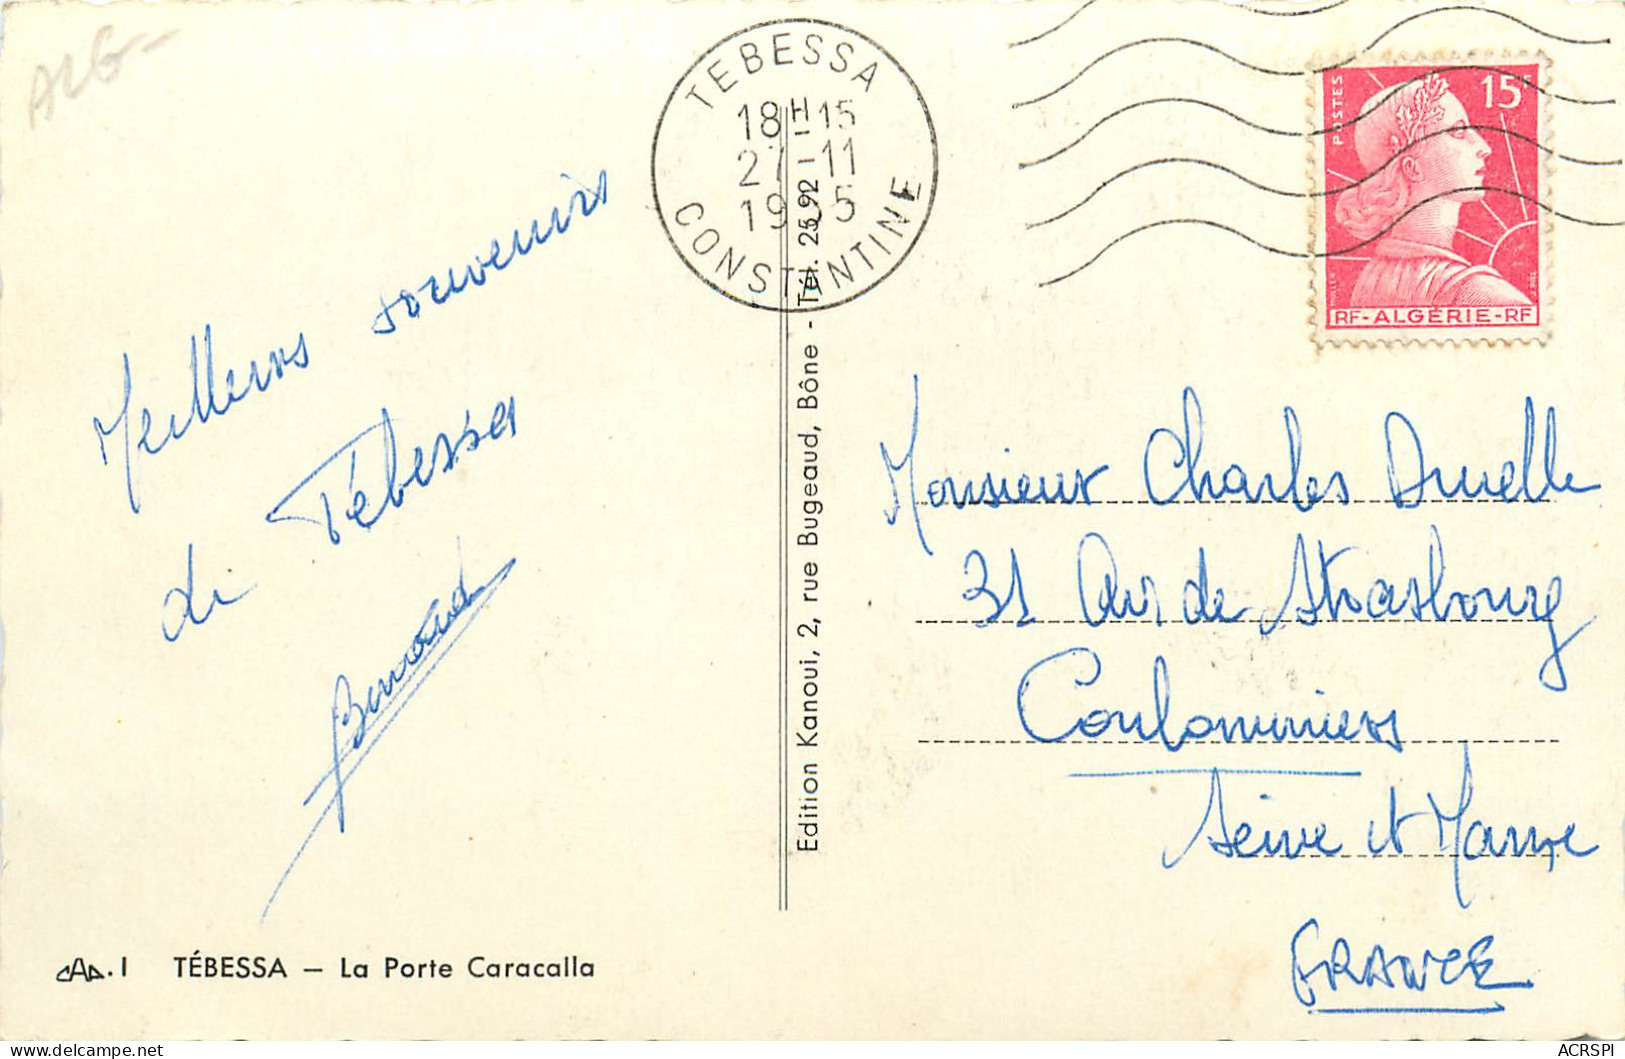 ALG
TEBESSA
18H-15
27-11
1955
CONSTANTINE
POSTES
15F
RF-ALGÉRIE-RF
Meilleurs souvenirs
de Tébessa
Edition Kanoui, 2, rue Bugeaud, Bône - Tél. 25.92
Monsieur Charles
31 Av de Strasbourg
Coulommiers
Seine et Marne
FRANCE
CAP.1 TÉBESSA – La Porte Caracalla
ACRSPI